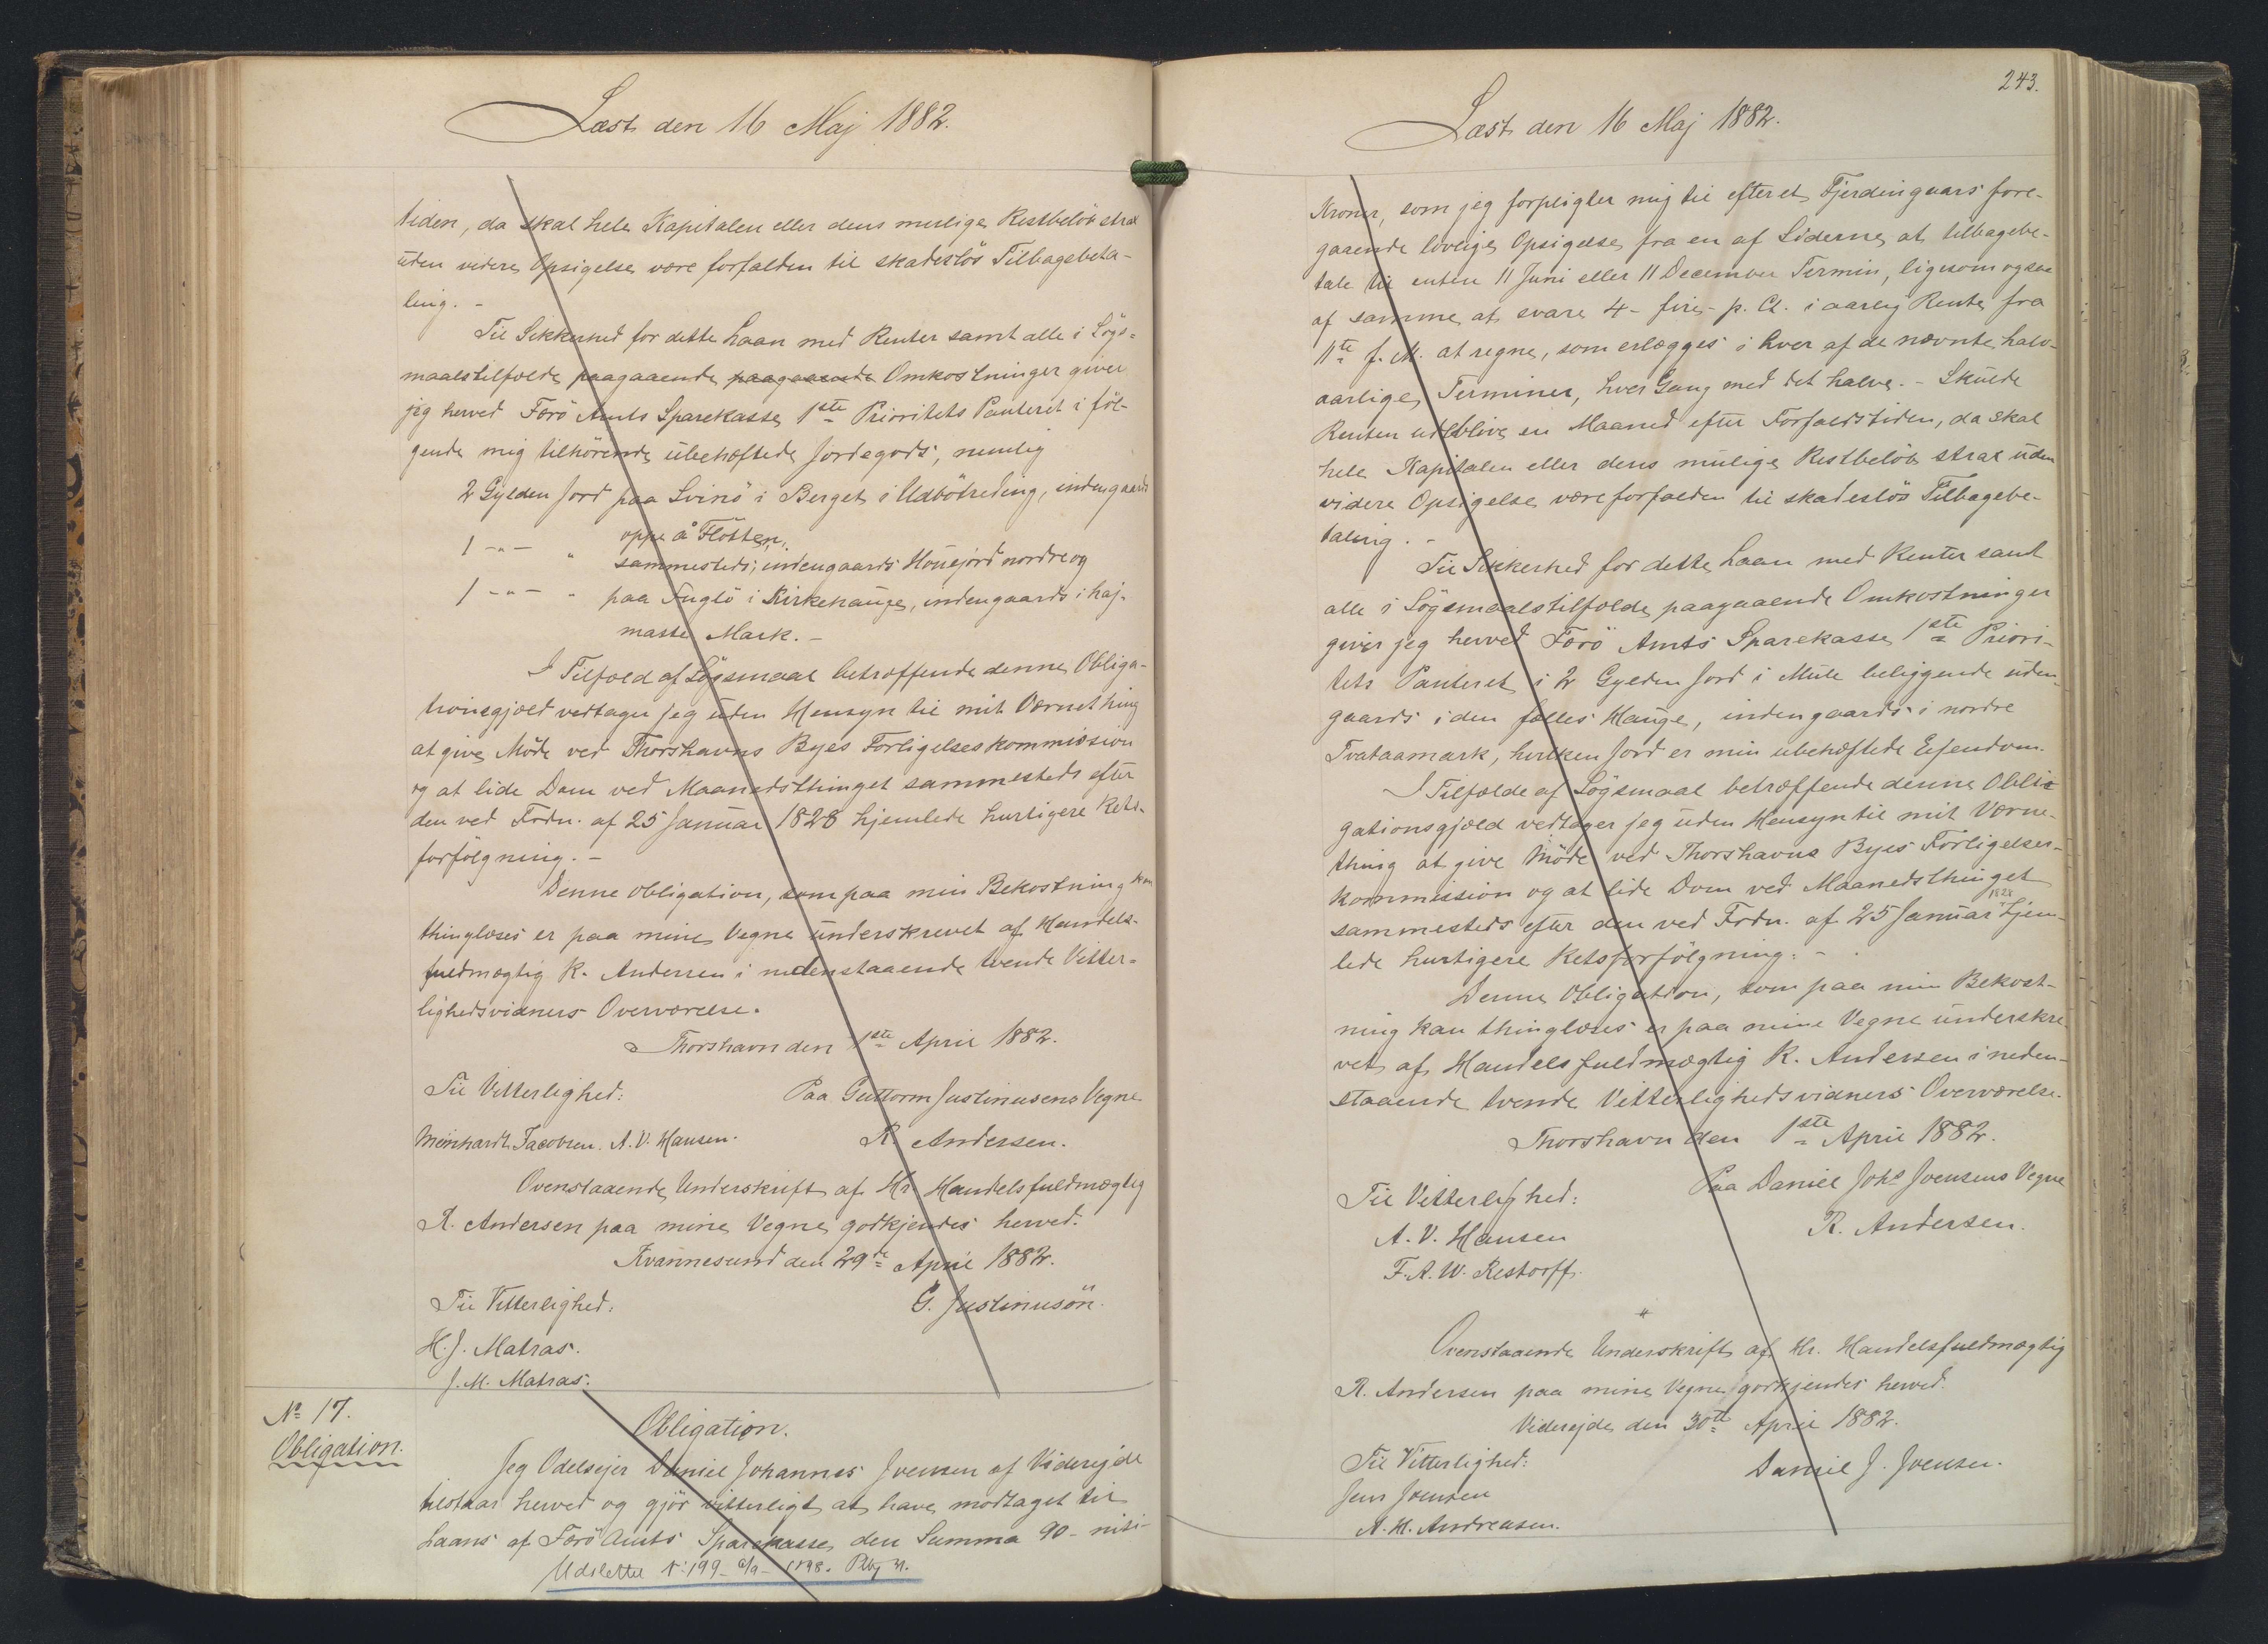 Læst den 16 Maj 1882.
tiden, da skal hele Kapitalen eller dens mulige Restbelöb strax
uden videre Opsigelse være forfalden til skadeslös Tilbagebeta-
ling. -
Til Sikkerhed for dette Laan med Renter samt alle i Lögs-
maalstilfælde paagaaende paagaaende Omkostninger giver
jeg herved Færö Amts Sparekasse 1ste Prioritets Panteret i föl-
gende mig tilhörende ubehæftede Jordegods, nemlig
2 Gylden Jord paa Svinö i Berget i Udbötreding, indengaards
oppe å Flötten,
1 -"- " sammesteds, indengaards Hönejord nordre og
1 -"- " paa Fuglö i Kirkehauge, indengaards i haj-
maste Mark. -
I Tilfæld af Lögsmaal betræffende denne Obliga-
tionsgjæld vedtager jeg uden Hensyn til mit Værnething
at give Möde ved Thorshavns Byes Forligelseskommission
og at lide Dom ved Maanedsthinget sammesteds efter
den ved Frdn. af 25 Januar 1828 hjemlede hurtigere Rets-
forfölgning. -
Denne Obligation, som paa min Bekostning kan
thinglæses er paa mine Vegne underskrevet af Handels-
fuldmægtig R. Andersen i nedenstaaende tvende Vitter-
lighedsvidners Overværelse.
Thorshavn den 1ste April 1882.
Til Vitterlighed: Paa Guttorm Justinusens Vegne
Meinhardt Jacobsen. A. V. Hansen. R. Andersen.
Ovenstaaende Underskrift af Hr. Handelsfuldmægtig
R. Andersen paa mine Vegne godkjendes herved.
Kvannesund den 29de April 1882.
Til Vitterlighed: G. Justinusön.
H. J. Matras.
J. M. Matras.
No 17.
Obligation.
Obligation.
Jeg Odelsejer Daniel Johannes Joensen af Viderejde
tilstaar herved og gjör vitterligt at have modtaget til
Laans af Færö Amts Sparekasse den Summa 90 - niti-
Udslettet No 199 - 6/9 - 1898. Pbg H.
243.
Læst den 16 Maj 1882.
Kroner, som jeg forpligter mig til efter et Fjerdingaars fore-
gaaende lovlige Opsigelse fra en af Siderne at tilbagebe-
tale til enten 11 Juni eller 11 December Termin, ligesom ogsaa
af samme at svare 4 - fire - p. Ct. i aarlig Rente fra
11te f. M. at regne, som erlægges i hver af de nævnte halv-
aarlige Terminer, hver Gang med det halve. - Skulde
Renten udeblive en Maaned efter Forfaldstiden, da skal
hele Kapitalen eller dens mulige Restbelöb strax uden
videre Opsigelse være forfalden til skadeslös Tilbagebe-
taling. -
Til Sikkerhed for dette Laan med Renter samt
alle i Lögsmaalstilfælde paagaaende Omkostninger
giver jeg herved Færö Amts Sparekasse 1ste Priori-
tets Panteret i 2 Gylden Jord i Mule beliggende uden-
gaards i den fælles Hauge, indengaards i nordre
Tvataamark, hvilken Jord er min ubehæftede Ejendom.
I Tilfælde af Lögsmaal betræffende denne Obli-
gationsgjæld vedtager jeg uden Hensyn til mit Værne-
thing at give Möde ved Thorshavns Byes Forligelses-
kommission og at lide Dom ved Maanedsthinget
sammesteds efter den ved Frdn. af 25 Januar 1828 hjem-
lede hurtigere Retsforfölgning. -
Denne Obligation, som paa min Bekost-
ning kan thinglæses er paa mine Vegne underskre-
vet af Handelsfuldmægtig R. Andersen i neden-
staaende tvende Vitterlighedsvidners Overværelse.
Thorshavn den 1ste April 1882.
Til Vitterlighed: Paa Daniel Johs Joensens Vegne
A. V. Hansen R. Andersen.
F. A. W. Restorff.
Ovenstaaende Underskrift af Hr. Handelsfuldmægtig
R. Andersen paa mine Vegne godkjendes herved.
Viderejde den 30te April 1882.
Til Vitterlighed: Daniel J. Joensen.
Jens Joensen
A. H. Andreasen.